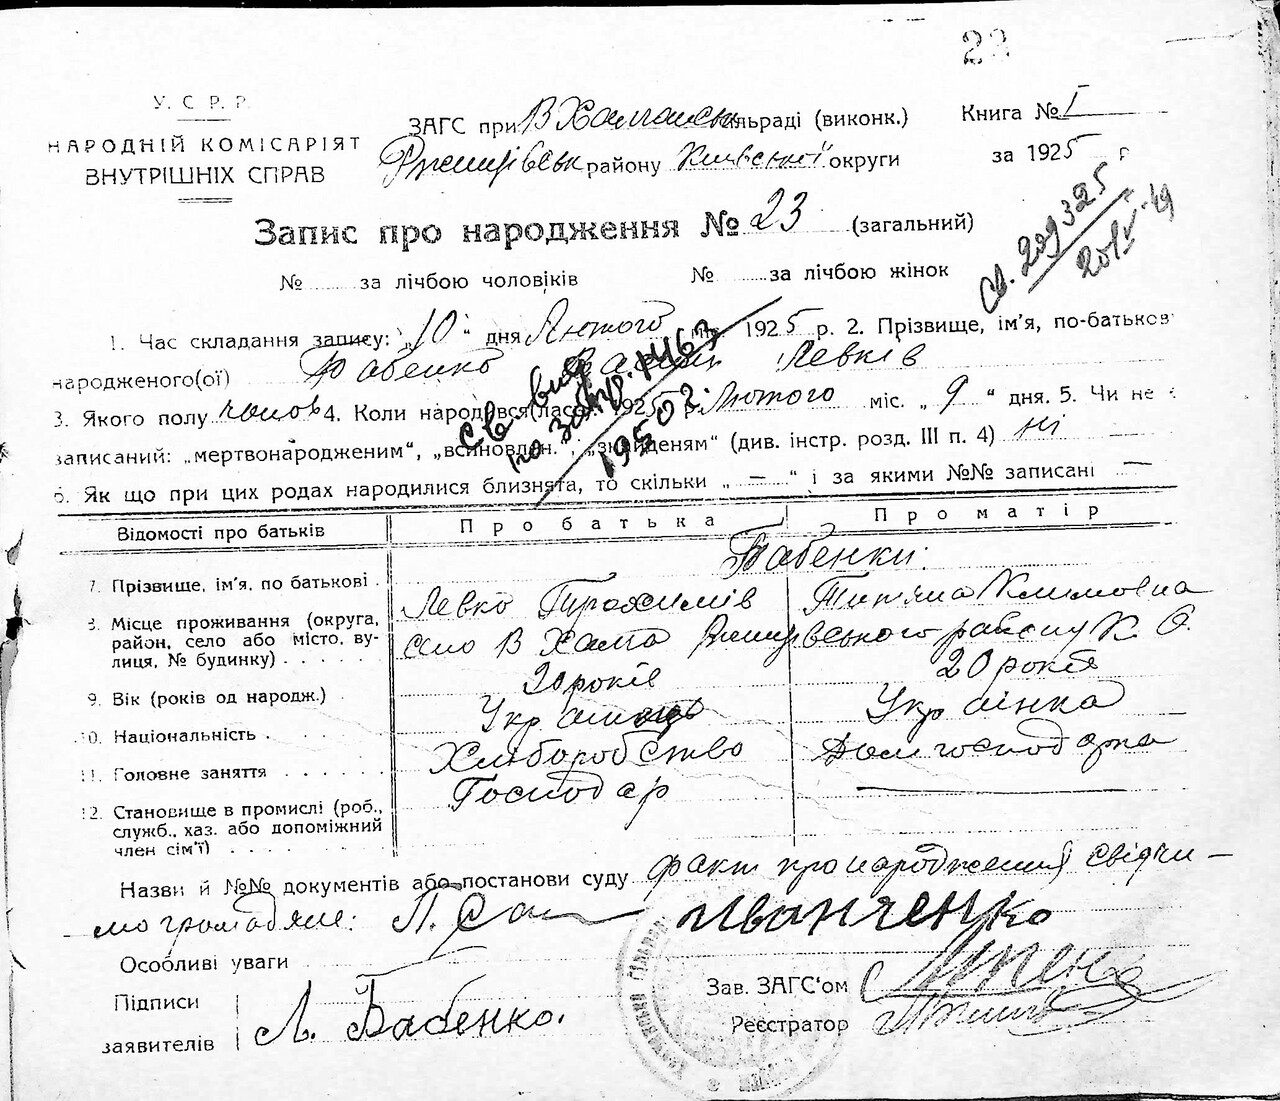 22
У. С. Р. Р.
НАРОДНІЙ КОМІСАРІЯТ
ВНУТРІШНІХ СПРАВ
ЗАГС при В Халчанськ сільраді (виконк.)
Ржищівськ району Київської округи
Книга № I
за 1925 р
Запис про народження № 23 (загальний)
№ за лічбою чоловіків № за лічбою жінок
св. 209325
20/V-49
1. Час складання запису: „10“ дня Лютого 1925 р. 2. Прізвище, ім'я, по-батькові
народженого(ої) Бабенко Левків
3. Якого полу чолов 4. Коли народився(лася) 1925 р. Лютого міс. „9“ дня. 5. Чи не є
записаний: „мертвонародженим“, „всиновлен.“, „знайденям“ (див. інстр. розд. III п. 4) ні
6. Як що при цих родах народилися близнята, то скільки „—“ і за якими №№ записані —
св вид
по запр. 1463
1950 г.
Відомості про батьків Про батька Про матір
Бабенки:
7. Прізвище, ім'я, по батькові . Левко Трохимів Титяна Климовна
8. Місце проживання (округа, район, село або місто, вулиця, № будинку) . . . . . село В Халча Ржищівського району К. О.
9. Вік (років од народж.) . 20 років 20 років
10. Національність . Українець Українка
11. Головне заняття . . . . . . Хліборобство Домгосподарка
12. Становище в промислі (роб., служб., хаз. або допоміжний член сім'ї) . . . . . . . Господар —
Назви й №№ документів або постанови суду факт про народження свідчи-
мо громадяне: Л. Іванченко
Особливі уваги
Підписи
заявителів Л. Бабенко.
Зав. ЗАГС'ом
Реєстратор